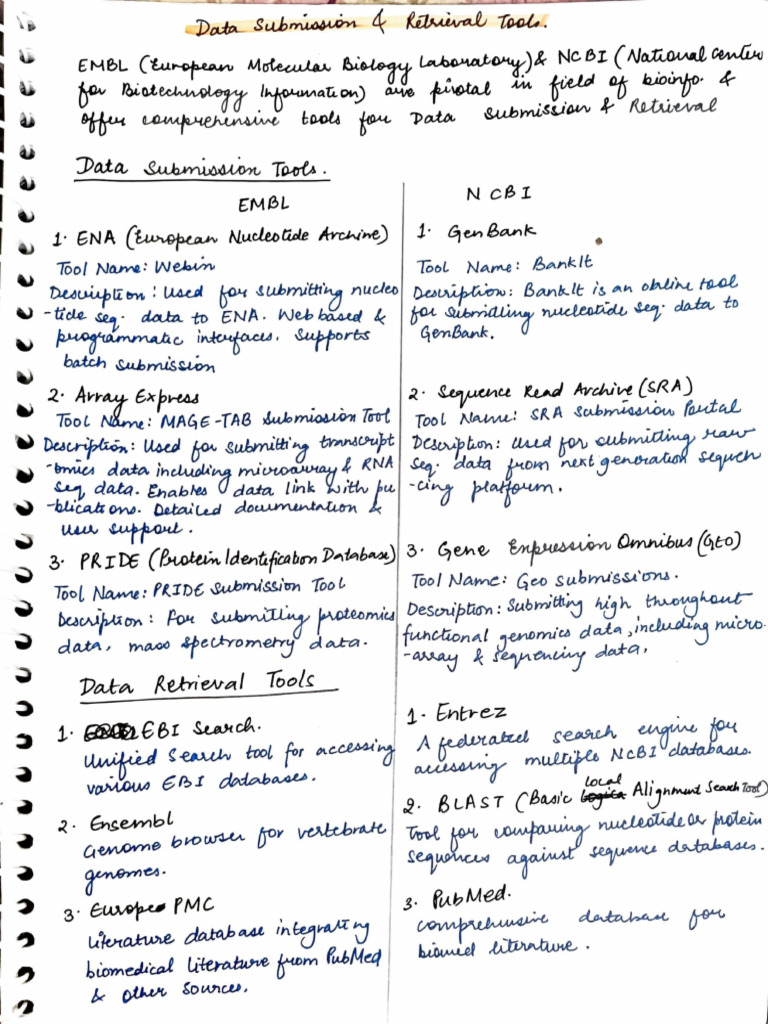 Data Submission & Retrieval Tools.
EMBL (European Molecular Biology Laboratory) & NCBI (National Center
for Biotechnology Information) are pivotal in field of bioinfo. &
offer comprehensive tools for Data Submission & Retrieval
Data Submission Tools.
EMBL
1. ENA (European Nucleotide Archive)
Tool Name: Webin
Description: Used for submitting nucleo
-tide seq. data to ENA. Web based &
programmatic interfaces. Supports
batch submission
2. Array Express
Tool Name: MAGE-TAB Submission Tool
Description: Used for submitting transcript
-omics data including microarray & RNA
seq data. Enables data link with pu
-blications. Detailed documentation &
user support.
3. PRIDE (Protein Identification Database)
Tool Name: PRIDE Submission Tool
Description: For submitting proteomics
data, mass spectrometry data.
NCBI
1. GenBank
Tool Name: BankIt
Description: BankIt is an online tool
for submitting nucleotide seq. data to
GenBank.
2. Sequence Read Archive (SRA)
Tool Name: SRA Submission Portal
Description: Used for submitting raw
seq. data from next generation sequen
-cing platform.
3. Gene Expression Omnibus (GEO)
Tool Name: Geo submissions.
Description: Submitting high throughout
functional genomics data, including micro-
-array & sequencing data,
Data Retrieval Tools
1. EBI Search.
Unified Search tool for accessing
various EBI databases.
2. Ensembl
Genome browser for vertebrate
genomes.
3. Europe PMC
Literature database integrating
biomedical literature from PubMed
& other sources.
1. Entrez
A federated search engine for
accessing multiple NCBI databases.
2. BLAST (Basic local Alignment Search Tool)
Tool for comparing nucleotide or protein
sequences against sequence databases.
3. PubMed.
comprehensive database for
biomed literature.